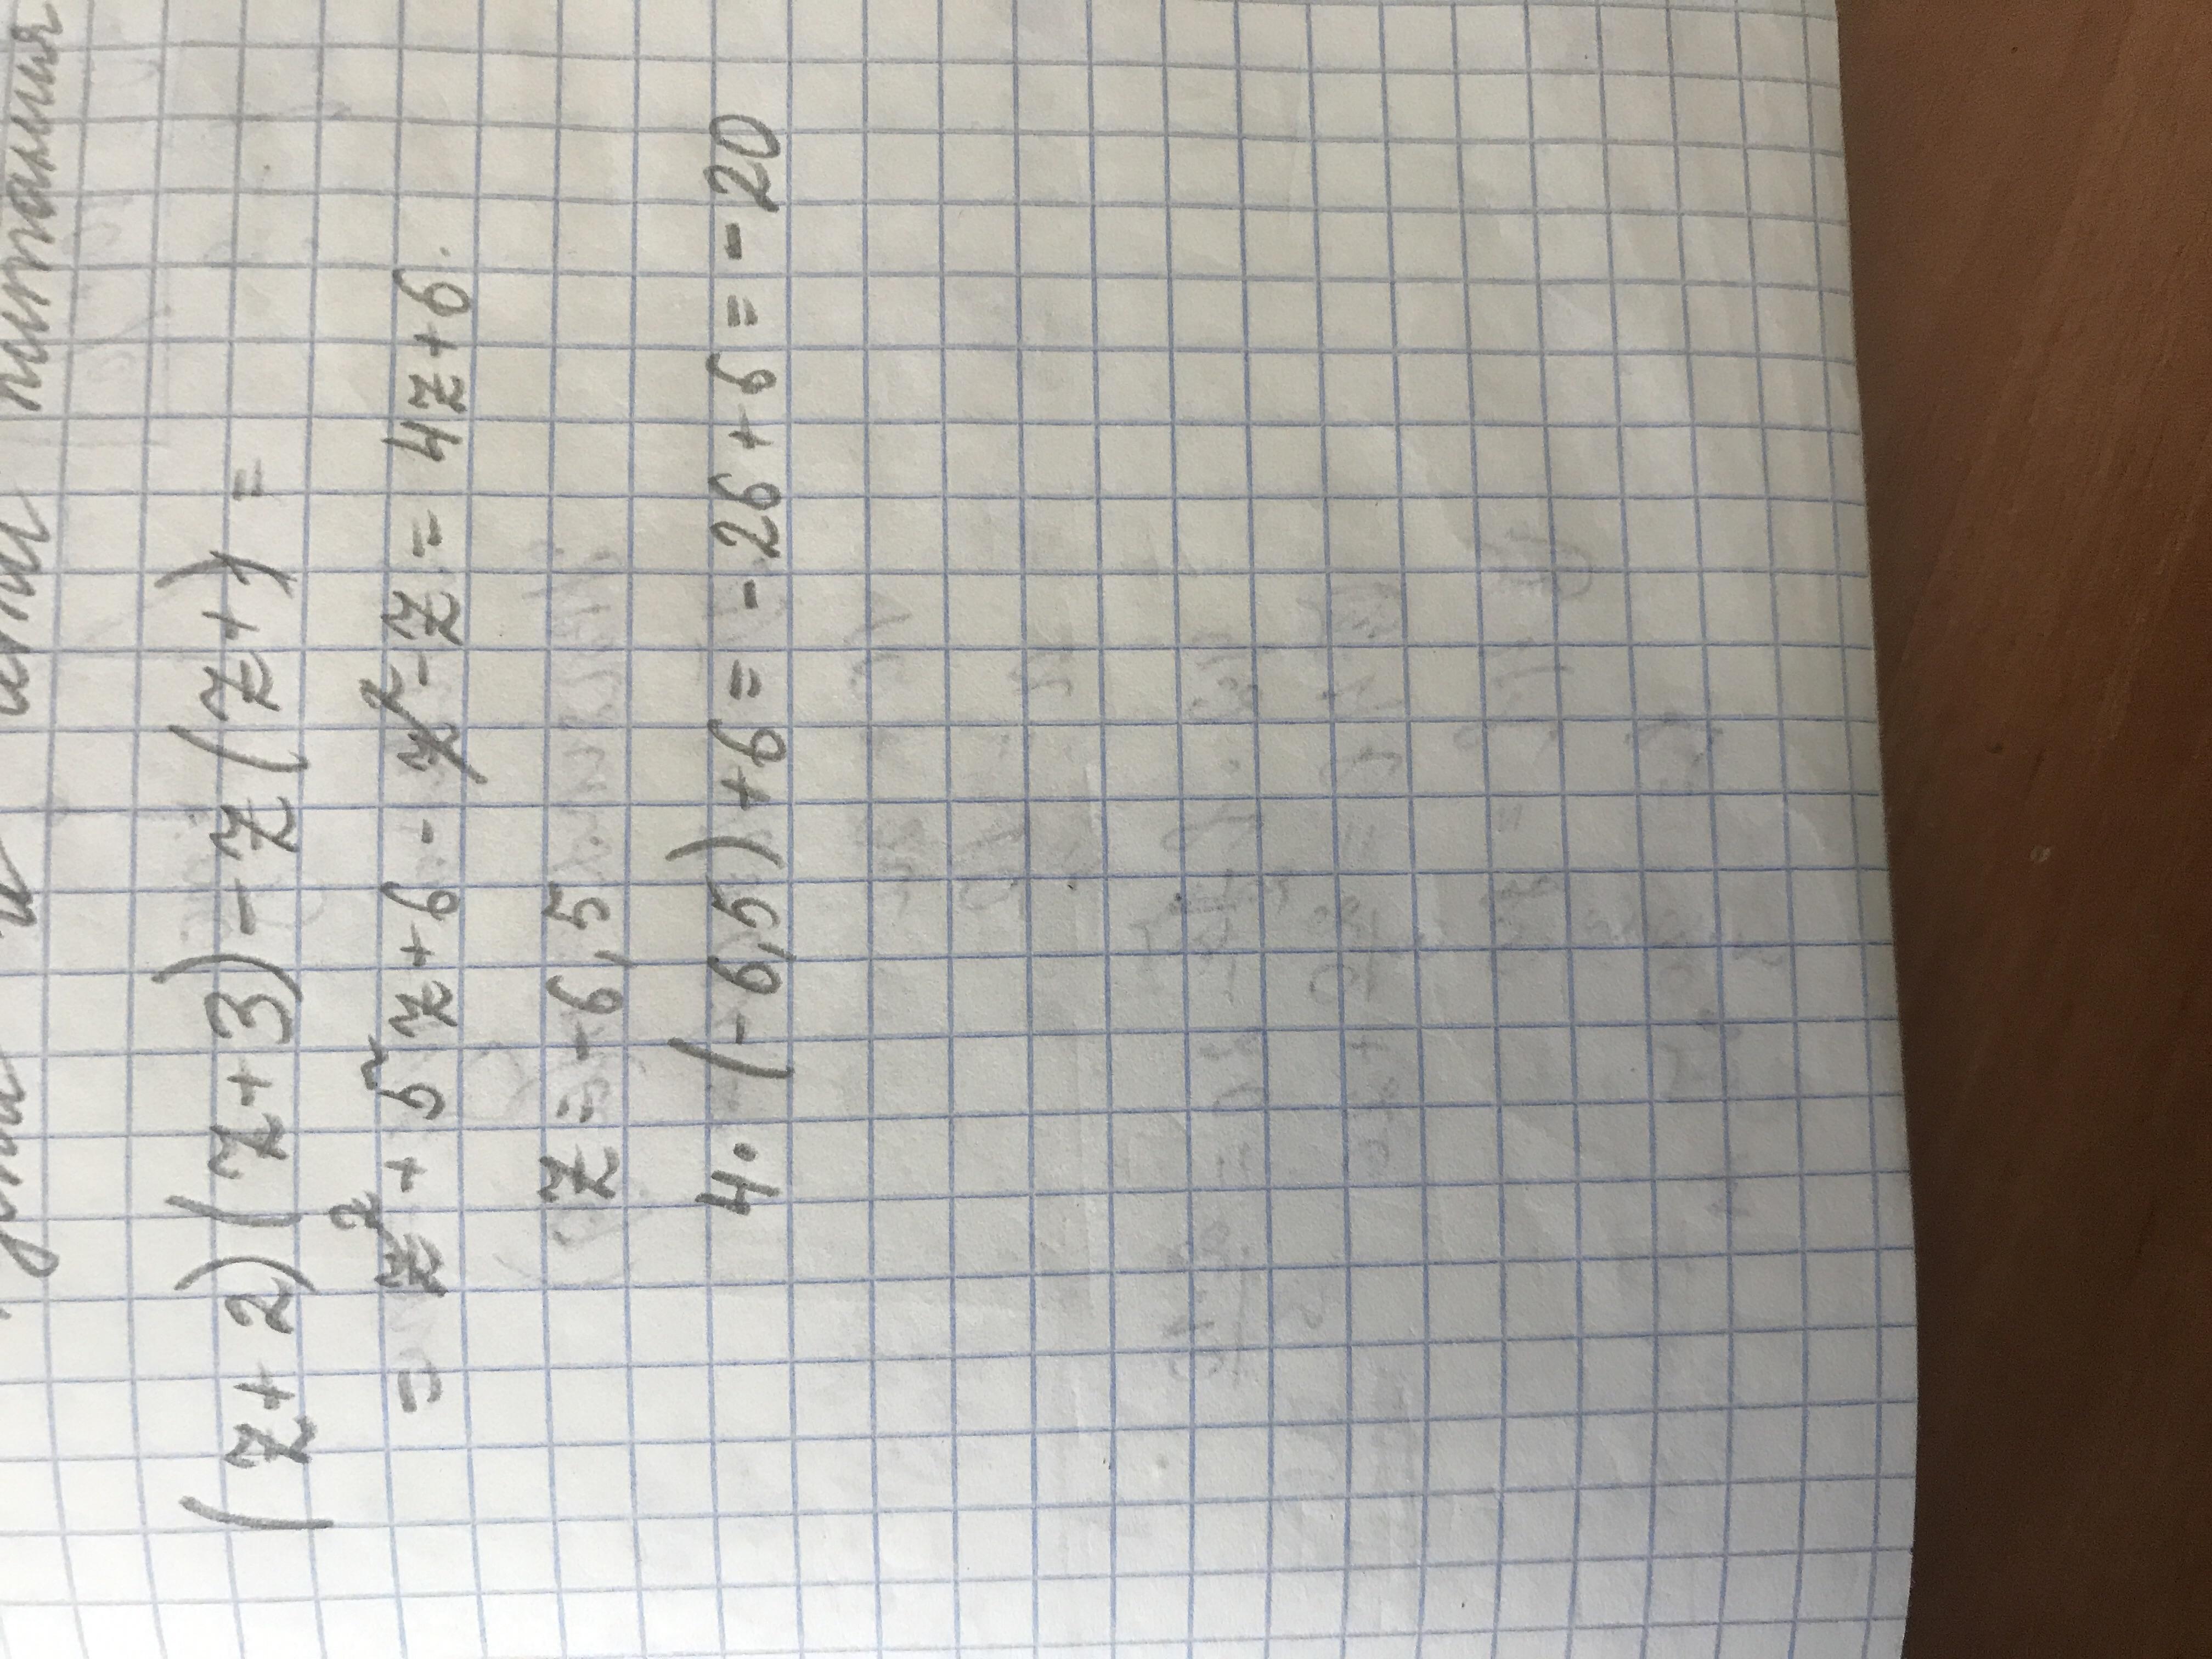 и
питания
(z+2)(z+3)-z(z+)=
= z²+5z+6-z²-z=4z+6.
z=-6,5
4·(-6,5)+6=-26+6=-20